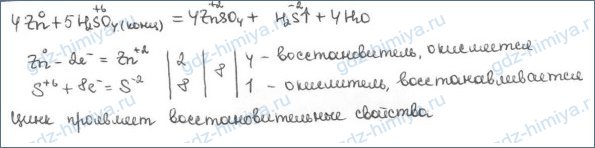 4Zn⁰ + 5H₂S⁺⁶O₄(конц) = 4Zn⁺²SO₄ + H₂S⁻²↑ + 4H₂O
Zn⁰ - 2e⁻ = Zn⁺² | 2 | 8 | 4 - восстановитель, окисляется
S⁺⁶ + 8e⁻ = S⁻² | 8 | | 1 - окислитель, восстанавливается
Цинк проявляет восстановительные свойства
gdz-himiya.ru